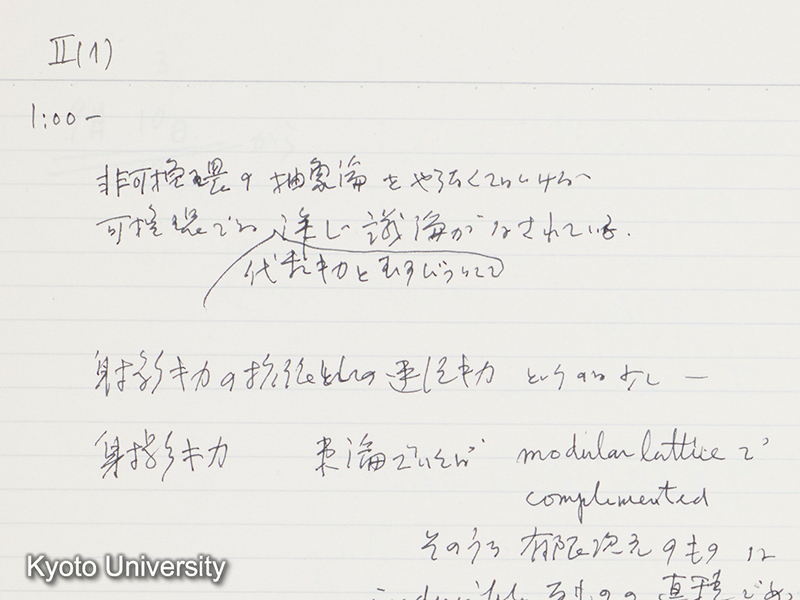 II(1)
1:00 −
非可換環の抽象論をやらなくてもいいけれど
可換環での 詳しい 議論がなされている.
代数幾何とむすびついてて
射影幾何の拡張としての連続幾何 というのは 少し −
射影幾何 束論でいえば modular lattice で
complemented
そのうち 有限次元のもの は
の直積であ
Kyoto University